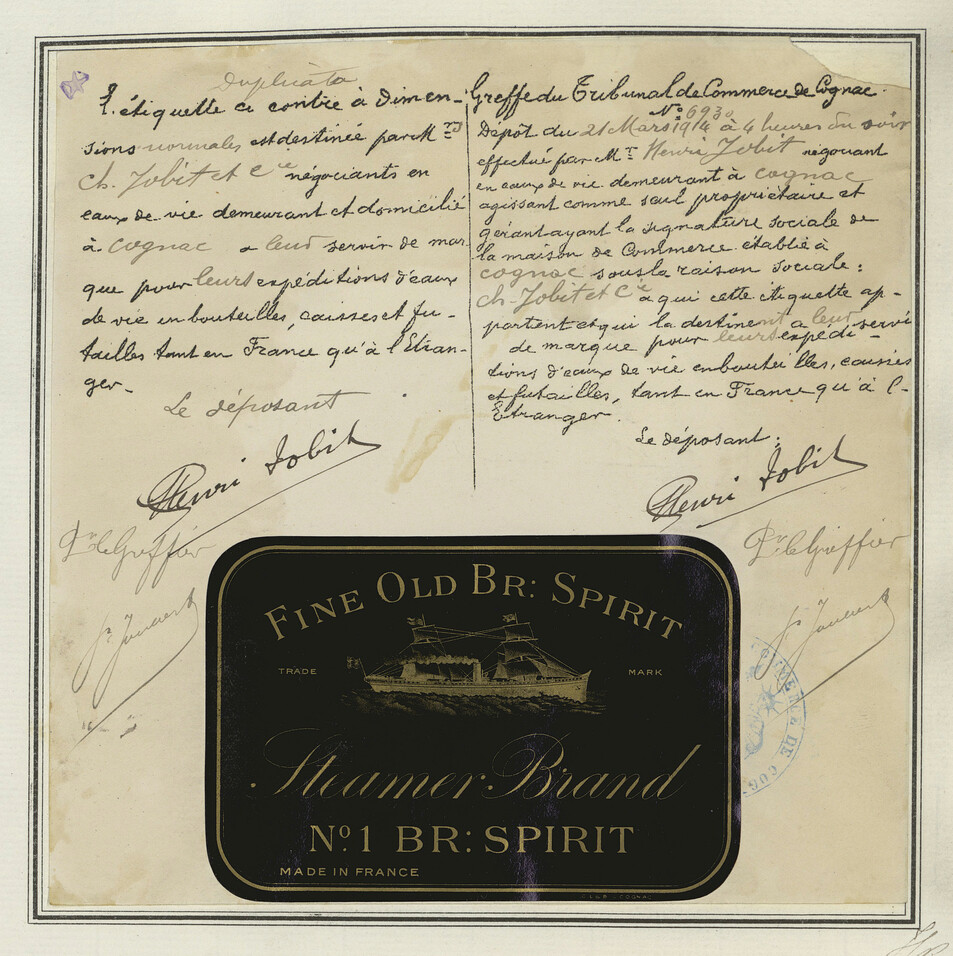 Duplicata
L'étiquette ci contre à Dimen-
sions normales est destinée par Mrs
Ch. Jobit et Cie négociants en
eaux de vie demeurant et domicilié
à Cognac a leur servir de mar
que pour leurs expéditions d'eaux
de vie en bouteilles, caisses et fu-
tailles tant en France qu'à l'Etran-
ger.
Le déposant
Henri Jobit
Pr le Greffier
Greffe du Tribunal de Commerce de Cognac.
No 6930
Dépôt du 21 Mars 1914 à 4 heures du soir
effectué par Mr Henri Jobit négociant
en eaux de vie demeurant à Cognac
agissant comme seul propriétaire et
gérant ayant la signature sociale de
la maison de Commerce établie à
Cognac sous la raison sociale :
Ch. Jobit et Cie à qui cette étiquette ap-
partient et qui la destinent a leur servi
de marque pour leurs expédi-
tions d'eaux de vie en bouteilles, caisses
et futailles, tant en France qu'à l'
Etranger
Le déposant :
Henri Jobit
Pr le Greffier
FINE OLD BR: SPIRIT
TRADE MARK
Steamer Brand
No 1 BR: SPIRIT
MADE IN FRANCE
DE COG